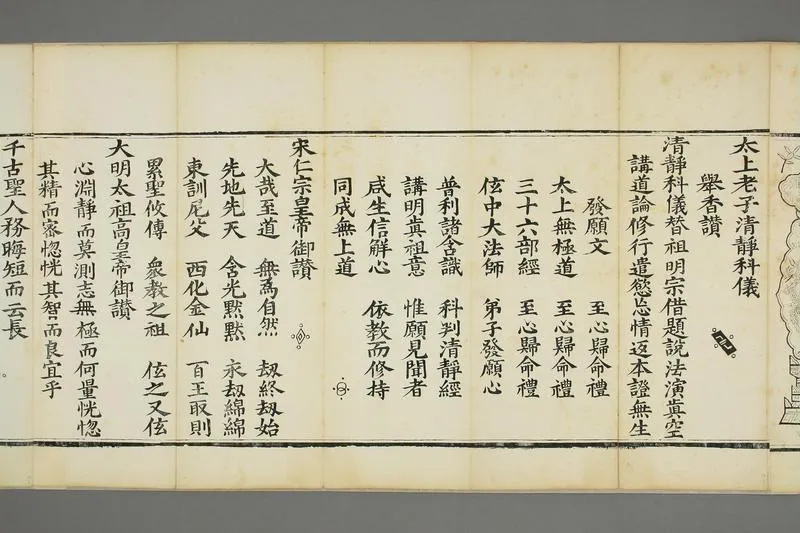 太上老子清靜科儀
舉香讚
清靜科儀替祖明宗借題說法演眞空
講道論修行遣慾忘情返本證無生
發願文　至心歸命禮
太上無極道　至心歸命禮
三十六部經　至心歸命禮
伭中大法師　弟子發願心
普利諸含識　科判清靜經
講明眞祖意　惟願見聞者
咸生信解心　依教而修持
同成無上道
宋仁宗皇帝御讚
大哉至道　無為自然　刼終刼始
先地先天　含光黙黙　永刼綿綿
東訓尼父　西化金仙　百王取則
累聖攸傳　衆教之祖　伭之又伭
大明太祖高皇帝御讚
心淵靜而莫測志無極而何量恍惚
其精而密惚恍其智而良宜乎
千古聖人務晦短而云長